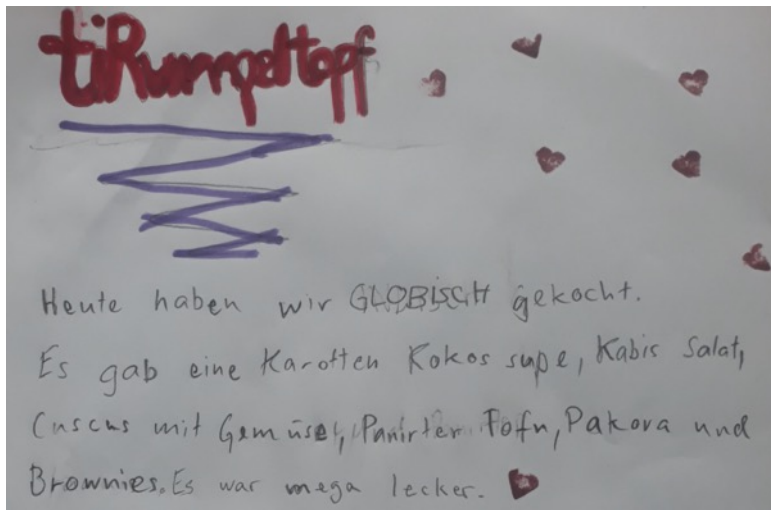 tiRumpeltopf
Heute haben wir GLOBISCH gekocht.
Es gab eine Karotten Kokos supe, Kabis Salat,
Cuscus mit Gemüse, Panirter Tofu, Pakora und
Brownies. Es war mega lecker.